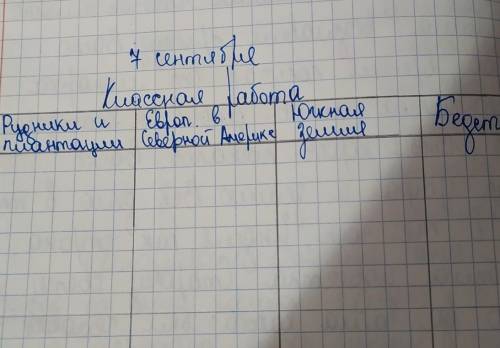 7 сентября
Классная работа
Рудники и
плантации
Европ. в
Северной Америке
Южная
земля
Бедет